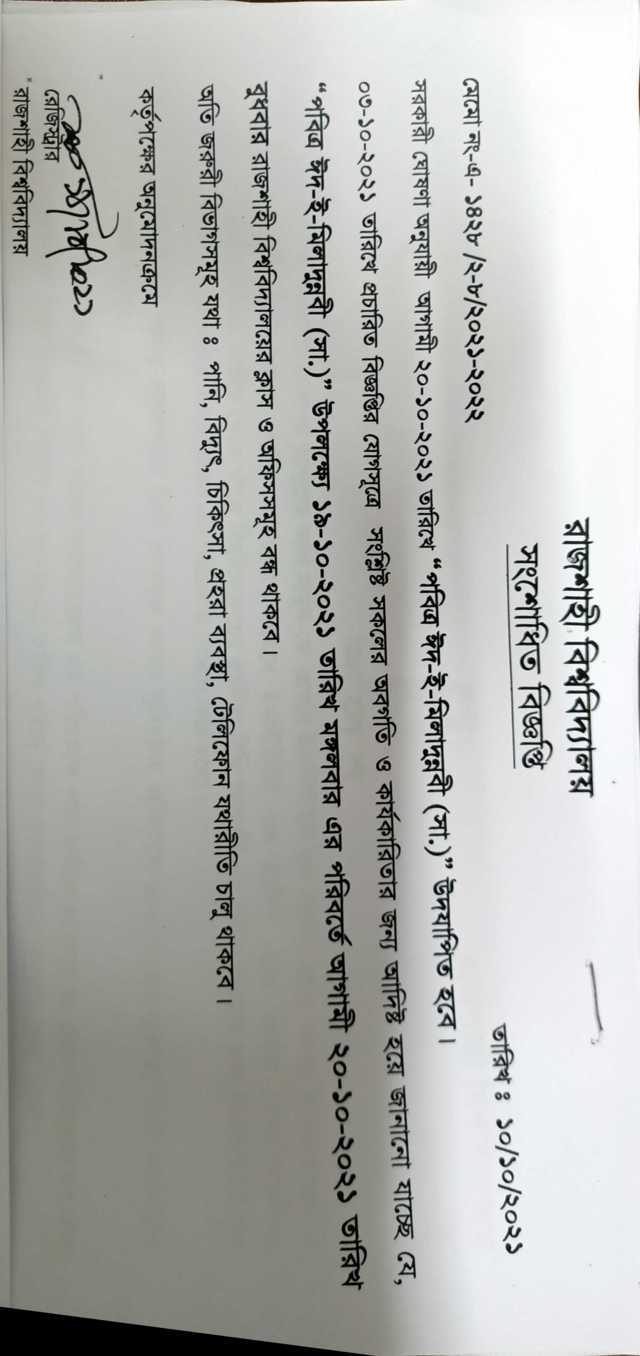 রাজশাহী বিশ্ববিদ্যালয়
সংশোধিত বিজ্ঞপ্তি
মেমো নং-এ- ১৪২৮ /২-৮/২০২১-২০২২ তারিখ ঃ ১০/১০/২০২১
সরকারী ঘোষণা অনুযায়ী আগামী ২০-১০-২০২১ তারিখে “পবিত্র ঈদ-ই-মিলাদুন্নবী (সা.)” উদযাপিত হবে।
০৭-১০-২০২১ তারিখে প্রচারিত বিজ্ঞপ্তির যোগসূত্রে সংশ্লিষ্ট সকলের অবগতি ও কার্যকারিতার জন্য আদিষ্ট হয়ে জানানো যাচ্ছে যে,
“পবিত্র ঈদ-ই-মিলাদুন্নবী (সা.)” উপলক্ষ্যে ১৯-১০-২০২১ তারিখ মঙ্গলবার এর পরিবর্তে আগামী ২০-১০-২০২১ তারিখ
বুধবার রাজশাহী বিশ্ববিদ্যালয়ের ক্লাস ও অফিসসমূহ বন্ধ থাকবে।
অতি জরুরী বিভাগসমূহ যথা ঃ পানি, বিদ্যুৎ, চিকিৎসা, প্রহরা ব্যবস্থা, টেলিফোন যথারীতি চালু থাকবে।
কর্তৃপক্ষের অনুমোদনক্রমে
রেজিস্ট্রার
রাজশাহী বিশ্ববিদ্যালয়